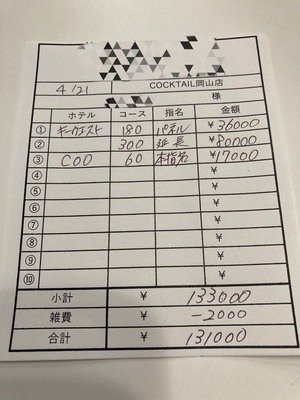 COCKTAIL岡山店
4/21
様
ホテル コース 指名 金額
① キーウエスト 180 パネル ¥36000
② 300 延長 ¥80000
③ COO 60 本指名 ¥17000
④ ¥
⑤ ¥
⑥ ¥
⑦ ¥
⑧ ¥
⑨ ¥
⑩ ¥
小計 ¥ 133000
雑費 ¥ -2000
合計 ¥ 131000